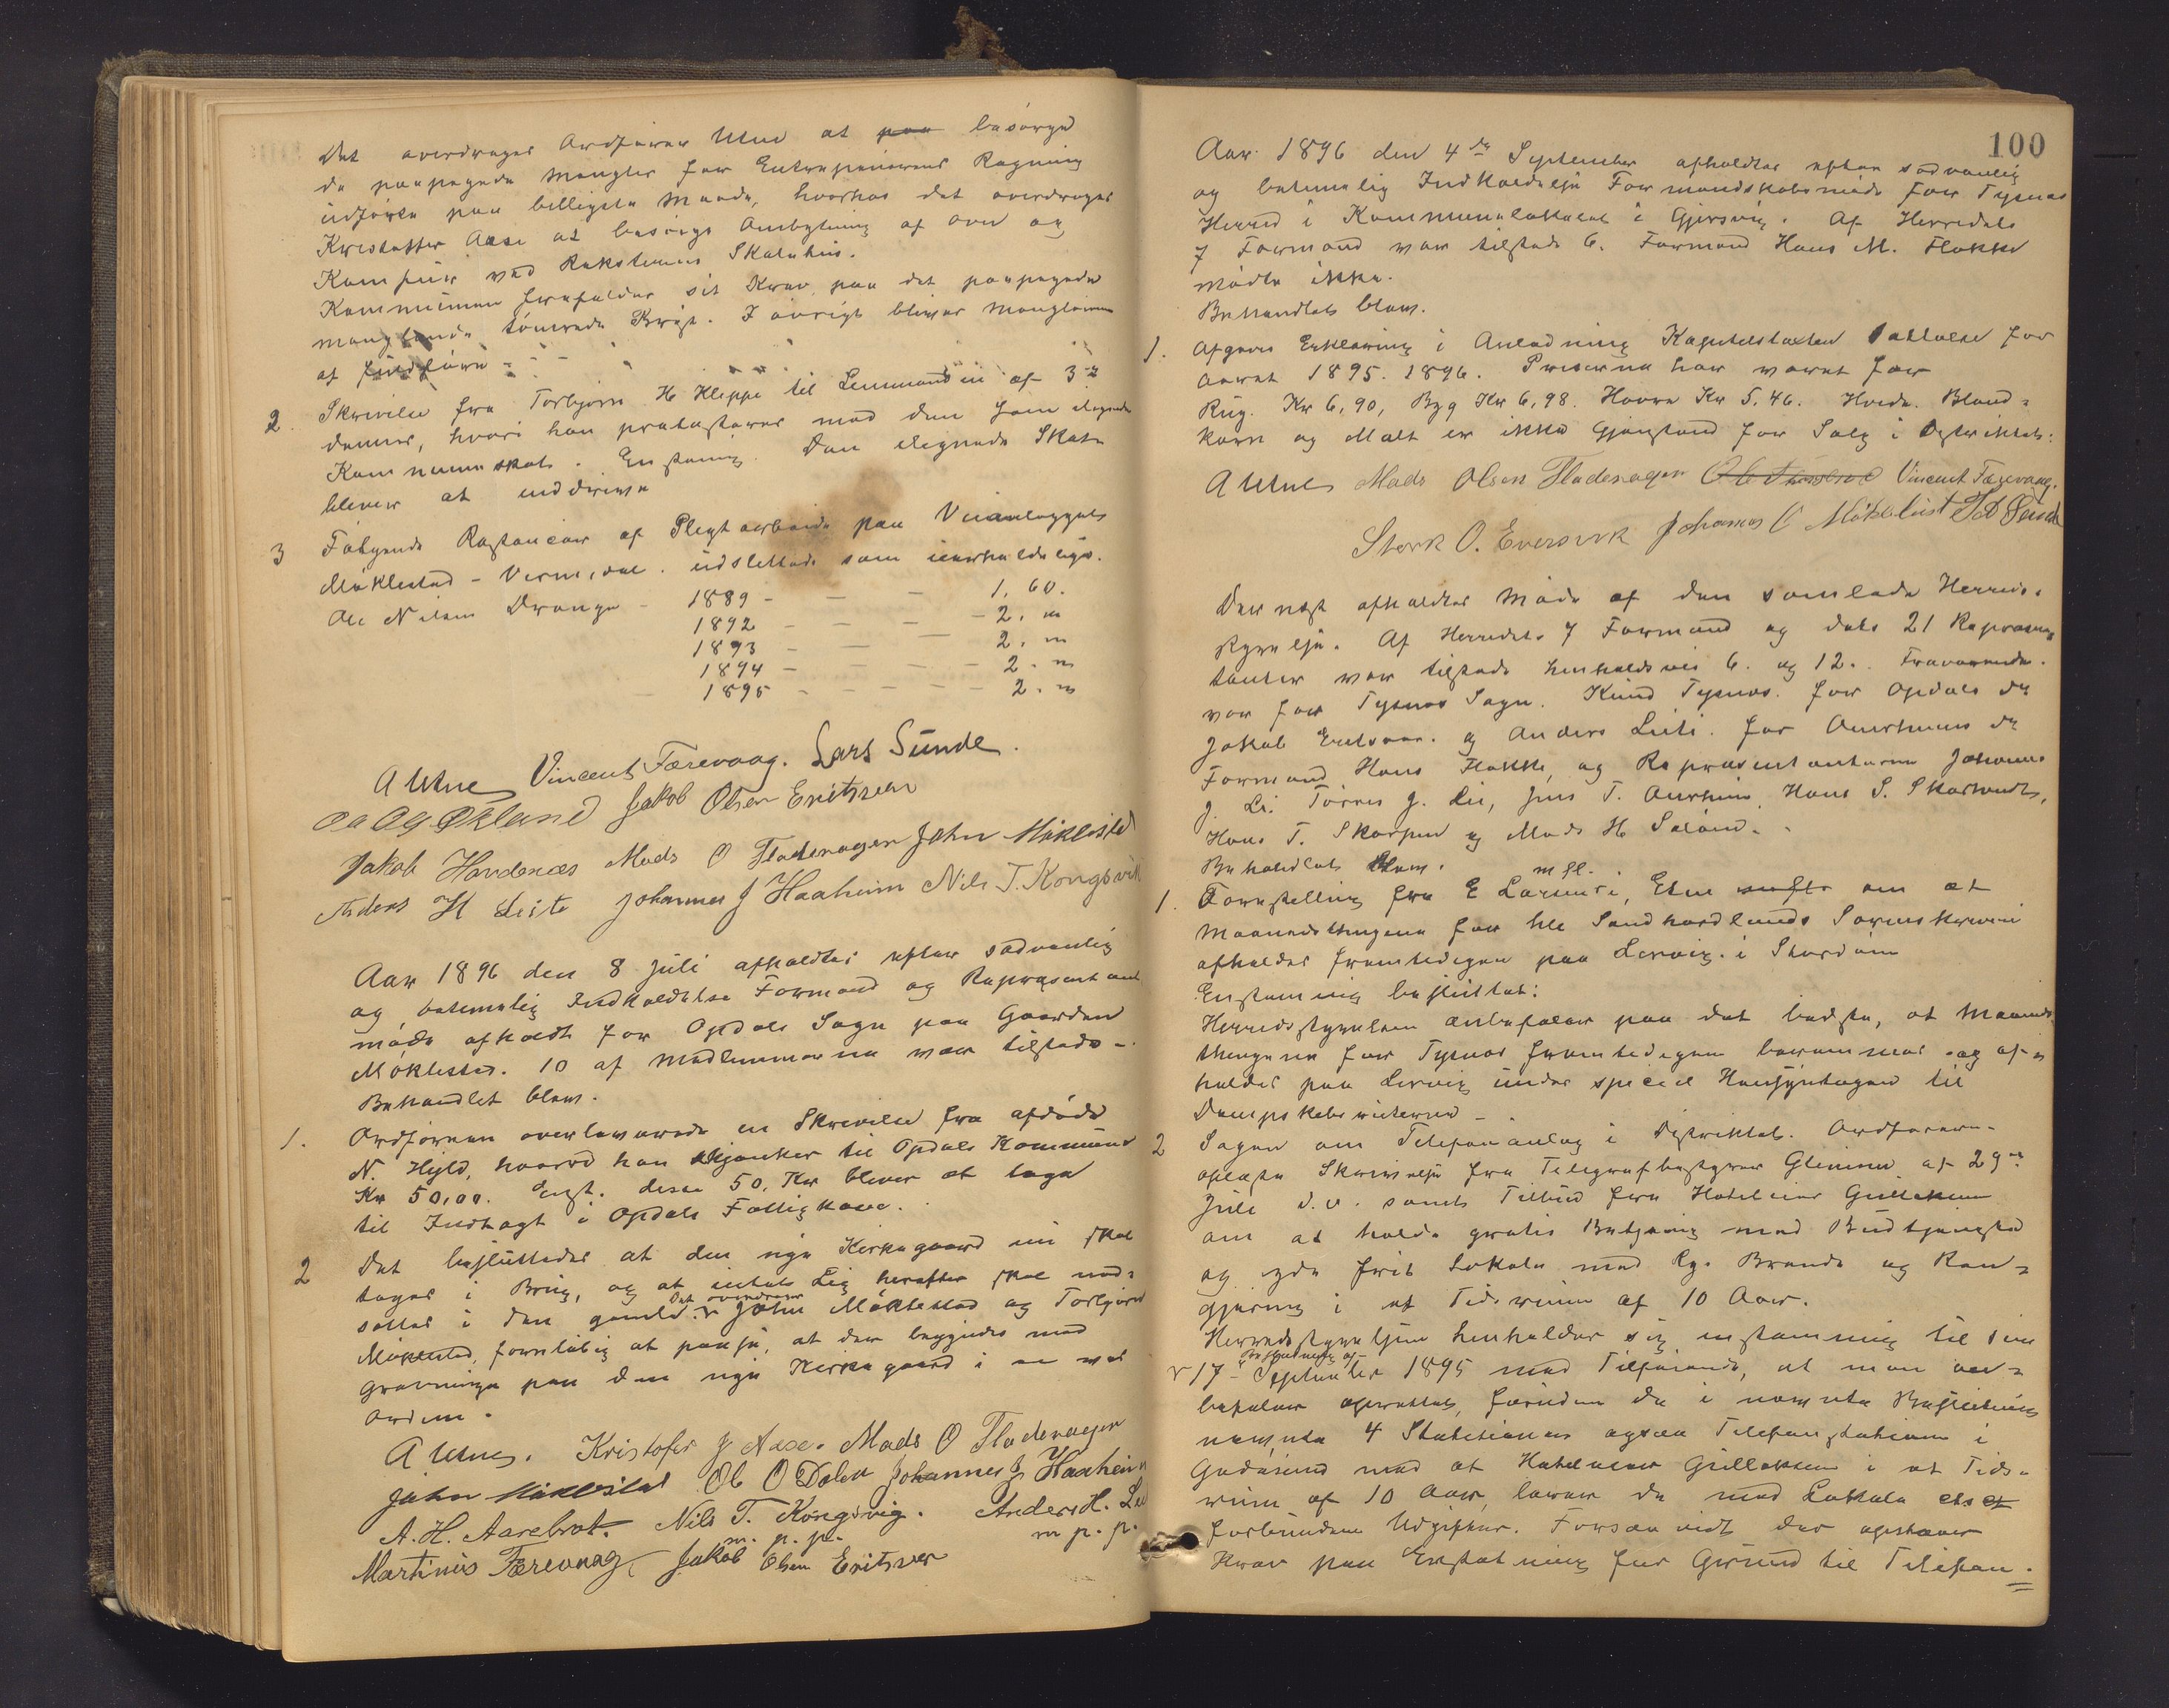 Det overdrages Ordförer Utne at paa besörge
de paapegede Mangler for Entreprenörens Regning
udförte paa billigste Maade, hvorhos det overdrages
Kristoffer Aase at besörge Ombytning af Ovn og
Komfuir ved Rakstenens Skolehus.
Kommunen frafalder sit Krav paa det paapegede
manglende tömrede Bryst. I övrigt bliver Manglerne
at
2. Skrivelse fra Torbjörn H Kleppe til Lensmanden af 3die
dennes, hvori han protesterer mod den ham ilignede
Kommuneskat. Enstemmig. Den ilignede Skat
bliver at inddrive
3 Fölgende Restancer af Pligtarbeide paa Veianlægget
Möklestad - Vermedal. udslettede som uerholdelige.
Ole Nilsen Drange - 1889 - - - 1, 60.
1892 - - - - 2. "
1893 - - - 2. "
1894 - - - - 2. "
1895 - - - - - 2. "
A Utne Vincent Færevaag. Lars Sunde.
Oa Ag Økland Jakob Olsen Eritsver
Jakob Hovdenæs Mads O Fladenagen John Möklestad
Anders H Leite Johannes J Haaheim Nils T. Kongsvik
Aar 1896 den 8 Juli afholdtes efter sædvanlig
og betimelig Indkaldelse Formand og Repræsentant
möde afholdt for Opdals Sogn paa Gaarden
Möklestad. 10 af Medlemmerne var tilstede.
Behandlet blev.
1. Ordföreren overleverede en Skrivelse fra afdöde
N. Hjeld, hvorved han skjænker til Opdals Kommune
Kr 50,00. Enst. disse 50, Kr bliver at tage
til Indtægt i Opdals Fattigkasse.
2 Det besluttedes at den nye Kirkegaard nu skal
tages i Brug, og at intet Lig herefter skal ned-
sættes i den gamle. Det overdrages John Möklestad og Torbjörn
Möklestad, forelöbig at paase, at der begyndes med
gravningen paa den nye Kirkegaard i en vis
Orden.
A Utne. Kristofer J Aase. Mads O Fladenagen
John Möklestad Ole O Dalen Johannes J Haaheim
A. H. Aarebrot. Nils T. Kongsvig. Anders H. Lei
m. p. p. m p. p.
Martinus Færevaag, Jakob Olsen Eritsver
100
Aar 1896 den 4de September afholdtes efter sædvanlig
og betimelig Indkaldelse Formandskabsmöde for Tysnæs
Herred i Kommunelokalet i Gjersvig. Af Herredets
7 Formænd var tilstede 6. Formand Hans M. Flakke
mödte ikke.
Behandlet blev.
1. Afgaves Erklæring i Anledning Kapitelstaxten for
Aaret 1895-1896. Priserne har været for
Rug. Kr 6,90, Byg Kr 6,98. Havre Kr 5.46. Hvede. Bland-
korn og Malt er ikke Gjenstand for Salg i Distriktet.
A Utne Mads Olsen Fladenagen Vincent Færevaag.
Sterk O. Eversvik Johannes O Möklebust
Dernæst afholdtes Möde af den samlede Herreds-
styrelse. Af Herredets 7 Formænd og dets 21 Repræsen
tanter var tilstede henholdsvis 6. og 12.. Fraværende.
var for Tysnæs Sogn. Knud Tysnæs. for Opdals do
Jakob Eritsver. og Anders Leite. for Onarheims do
Formand Hans Flakke, og Repræsentanterne Johannes
J. Li. Törres J. Lie, Jens T. Onarheim, Hans S. Skarveidt,
Hans T. Skorpen og Mads H Soland.
Behandlet blev.
1. Forestilling fra E Larsen i Etne m fl. om at
Maanedsthingene for hele Söndhordlands Sorenskriveri
afholdes fremtidigen paa Lervig i Stordöen
Enstemmig besluttet:
Herredsstyrelsen anbefaler paa det bedste, at Maaneds
thingene for Tysnæs fremtidigen berammes og af-
holdes paa Lervig under speciel Hensyntagen til
Dampskibsruterne.
2 Sagen om Telefonanlæg i Distriktet. Ordföreren
oplæste Skrivelse fra Telegrafbestyrer Glimme af 29de
Juli d.a. samt Tilbud fra Hoteleier Gullaksen
om at holde gratis Betjening med Budtjeneste
og yde frit Lokale med Lys Brænde og Ren-
gjöring i et Tidsrum af 10 Aar.
Herredsstyrelsen henholder sig enstemmig til sin
Beslutning af 17 September 1895 med Tilföiende, at man an-
befaler oprettet, foruden de i nævnte Beslutning
nævnte 4 Stationer ogsaa Telefonstation i
Godösund mod at Hoteleier Gullaksen i et Tids-
rum af 10 Aar, bærer de med Lokale
forbundne Udgifter. Forsaavidt der opstaaer
Krav paa Erstatning for Grund til Telefon-